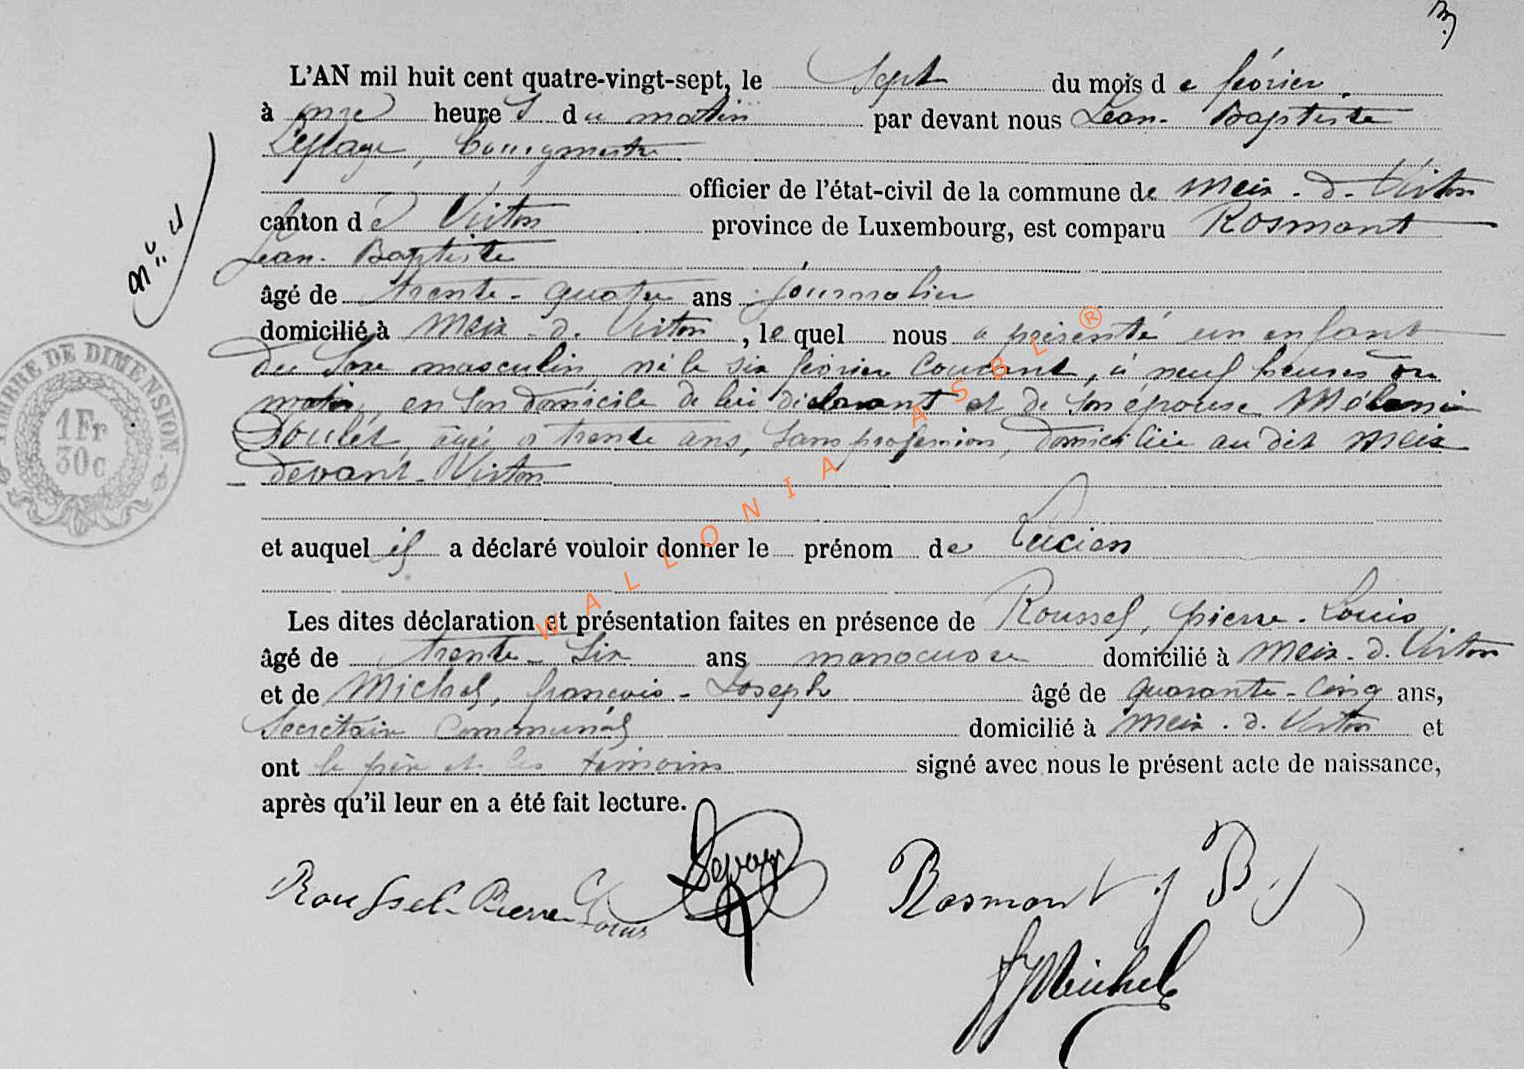 3
L'AN mil huit cent quatre-vingt-sept, le sept du mois de février
à onze heures du matin par devant nous Jean-Baptiste
Lepage, bourgmestre
officier de l'état-civil de la commune de Meix-d.-Virton
canton de Virton province de Luxembourg, est comparu Rosmant
Jean-Baptiste
âgé de trente-quatre ans journalier
domicilié à Meix-d.-Virton, lequel nous a présenté un enfant
du sexe masculin né le six février courant, à neuf heures du
matin, en son domicile de lui déclarant et de son épouse Mélanie
Goulet, âgée de trente ans, sans profession, domiciliée au dit Meix
devant-Virton
et auquel il a déclaré vouloir donner le prénom de Lucien
Les dites déclaration et présentation faites en présence de Roussel, pierre-Louis
âgé de trente-six ans manoeuvre domicilié à Meix-d.-Virton
et de Michel, françois-Joseph âgé de quarante-cinq ans,
Secrétaire Communal domicilié à Meix-d.-Virton et
ont le père et les témoins signé avec nous le présent acte de naissance,
après qu'il leur en a été fait lecture.
Roussel Pierre Louis
Lepage
Rosmant J B
F J Michel
N° 4
TIMBRE DE DIMENSION
1 Fr
30 c
WALLONIA ASBL ®